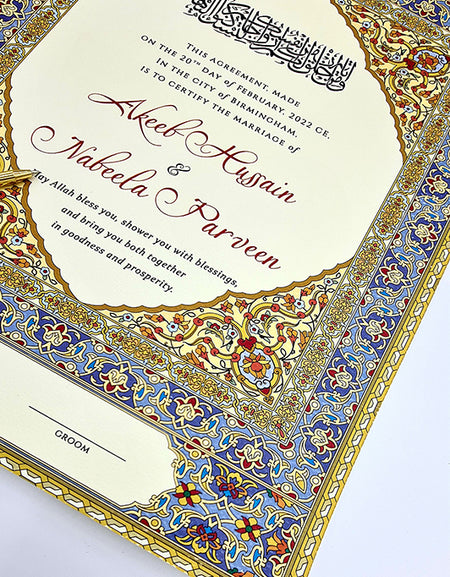 THIS AGREEMENT, MADE
ON THE 20TH DAY of FEBRUARY, 2022 CE,
IN THE CITY of BIRMINGHAM,
IS TO CERTIFY THE MARRIAGE of
Akeeb Hussain
&
Nabeela Parveen
May Allah bless you, shower you with blessings,
and bring you both together
in goodness and prosperity.
GROOM